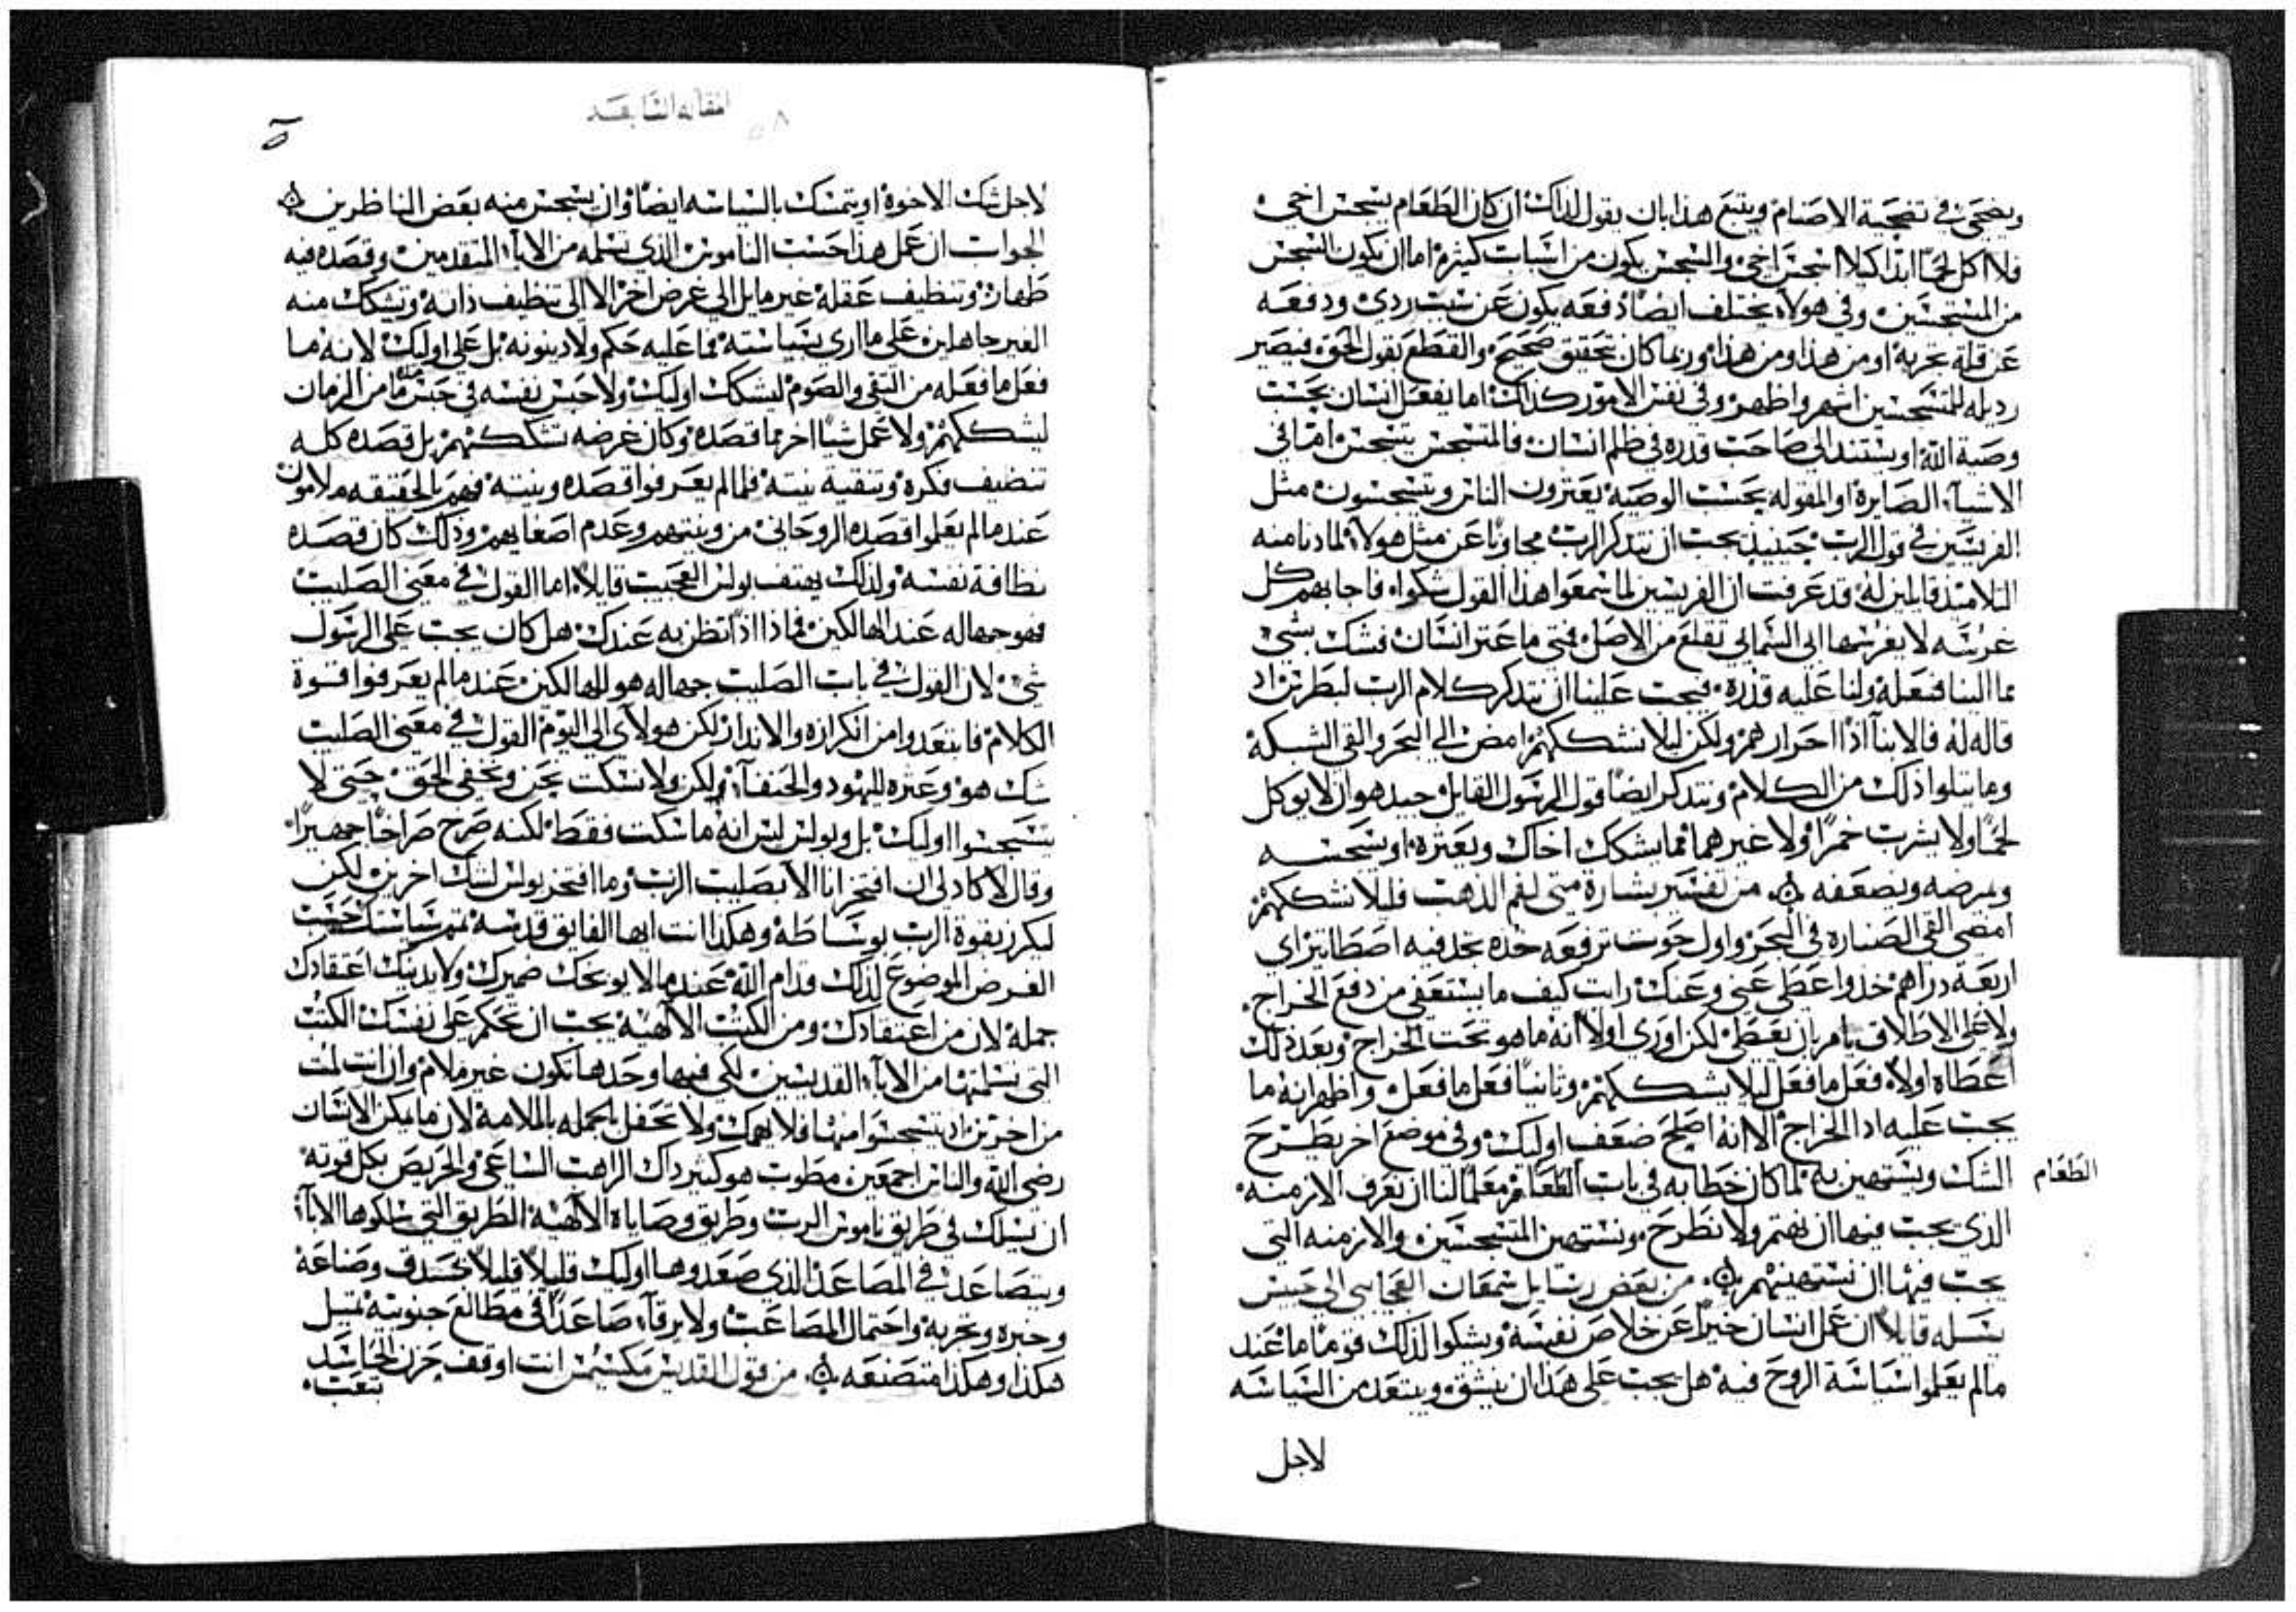 ويضحي في تضحية الاصنام ويتبع هذا بان يقول لذلك ان كان الطعام يسجس اخي
فلا اكل لحمًا ابدا كيلا اسجس اخي والسجس يكون من اسباب كثيره اما ان يكون السجس
من المسجسين وفي هولاء يختلف ايضًا دفعه يكون عن سبب ردي ودفعه
عن قلة تجربه او من هذا ومن هذا وربما كان تحقيق صحيح والقطع بقول الحق فيصير
رديله للمتسجسين اشهر واظهر وفي نفس الامور كذلك اما يفعل انسان بحسب
وصية الله او يستند الى صاحب قدره في ظلم انسان فالمتسجس يتسجس اما في
الاشياء الصايرة او المقوله بحسب الوصيه يعثرون الناس ويتسجسون مثل
الفريسيين في قول الرب حينيذ يجب ان نتذكر الرب مجاوبًا عن مثل هولاء لما دنا منه
التلاميذ قايلين له قد عرفت ان الفريسين لما سمعوا هذا القول شكوا فاجابهم كل
غرسه لا يغرسها ابي السمايي تقلع من الاصل فمتى ما عثر انسان فشك بشي
مما الينا فنعله ولنا عليه قدره فيجب علينا ان نتذكر كلام الرب لبطرس اذ
قاله له فالابنا اذًا احرار هم ولكن ليلا نشككهم امض الى البحر والقي الشبكة
وما يتلوا ذلك من الكلام ونتذكر ايضًا قول الرسول القايل جيد هو ان لا يوكل
لحمًا ولا يشرب خمرًا ولا غيرهما مما يشكك اخاك ويعثره او يسجسه
ويمرضه ويضعفه من تفسير بشارة متى لفم الذهب فليلا نشككهم
امضي القي الصناره في البحر واول حوت ترفعه خذه تجد فيه اصطاتيرًا اي
اربعة دراهم خذ واعطى عني وعنك رايت كيف ما يستعفي من دفع الخراج
ولا على الاطلاق يامر بان يعطى لكن اوري اولًا انه ما هو تحت الخراج وبعد ذلك
اعطاه اولاً فعل ما فعل ليلا يشككهم وثانيًا فعل ما فعل واظهر انه ما
يجب عليه ادا الخراج الا انه اصلح ضعف اوليك وفي موضع اخر يطرح
الشك ويستهين به لما كان خطابه في باب الطعام معلمًا لنا ان نعرف الازمنه
الطعام
الذي يجب فيها ان نهتم ولا نطرح ونستهين المتسجسين والازمنه التي
يجب فيها ان نستهينهم من بعض رسايل سمعان العجايبي الى حبيس
يسله قايلًا ان عمل انسان خيرًا عن خلاص نفسه ويشكوا لذلك قومًا ما عند
ما لم يعلموا سياسة الروح فيه هل يجب على هذا ان ينشق ويبتعد من السياسه
لاجل
المقاله السابعه
لاجل شك الاخوة او يتمسك بالسياسه ايضًا وان يسجس منه بعض الناظرين
الجواب ان عمل هذا حسب الناموس الذي تسلمه من الاباء المتقدمين وقصده فيه
طهارة وتنظيف عقله غير مايل الي غرض اخر الا الى تنظيف ذاته وتشكك منه
الغير جاهلين على ما اري بسياسته فما عليه حكم ولا دينونه بل على اوليك لانه ما
فعل ما فعله من التقى والصوم ليشكك اوليك ولا حبس نفسه في حبس ما من الزمان
ليشككهم ولا عمل شيًا اخر مما قصده وكان غرضه تشككهم بل قصده كله
تنضيف فكره وتنقية نيته فلما لم يعرفوا قصده ونيته فهم بالحقيقه ملامون
عند ما لم يعلموا قصده الروحاني من ونيتهم وعدم اصغايهم وذلك كان قصده
نظافة نفسه ولذلك يهتف بولس العجيب قايلًا اما القول في معنى الصليب
فهو جهاله عند الهالكين فماذا اذًا تظن به عندك هل كان يجب على الرسول
شي لان القول في باب الصليب جهاله هو للهالكين عند ما لم يعرفوا قوة
الكلام فابتعدوا من الكرازه والانذار لكن هولاي الى اليوم القول في معنى الصليب
شك هو وعثره لليهود والحنفاء ولكن ولا نسكت نحن ونخفي الحق حتى لا
يتسجسوا اوليك بل وبولس ليس انه ما سكت فقط لكنه صرح صراخًا جهيرًا
وقال لا كاد لي ان افتخر انا الا بصليب الرب وما افتخر بولس لشك اخرين لكن
ليكرز بقوة الرب بوساطه وهكذا انت ايها الفايق قدسه تمم سياستك حسب
الفرض الموضوع لذلك قدام الله عند ما لا يوبخك ضميرك ولا يدينك اعتقادك
جمله لان من اعتقادك ومن الكتب الالهيه يجب ان تحكم على نفسك الكتب
التي تسلمتها من الاباء القديسين لكي فيها وحدها تكون غير ملام وان انت لمت
من اخرين اذ يتسجسوا منها فلا يهمك ولا تحفل بالجمله بالملامة لان ما يمكن الانسان
رضى الله والناس اجمعين مطوب هو كثير ذاك الراهب الساعي والحريص بكل قوته
ان يسلك في طريق ناموس الرب وطريق وصاياه الالهيه الطريق التي سلكوها الاباء
ويتصاعد في المصاعد الذي صعدوها اوليك قليلًا قليلًا بحذق وصناعة
وخبره وتجربه واحتمال المصاعب ولا يرقاء صاعدًا في مطالع جنونيه تميل
هكذا وهكذا متصنعه من قول القديس مكسيمس انت اوقف حزن الحاسد
بتعب